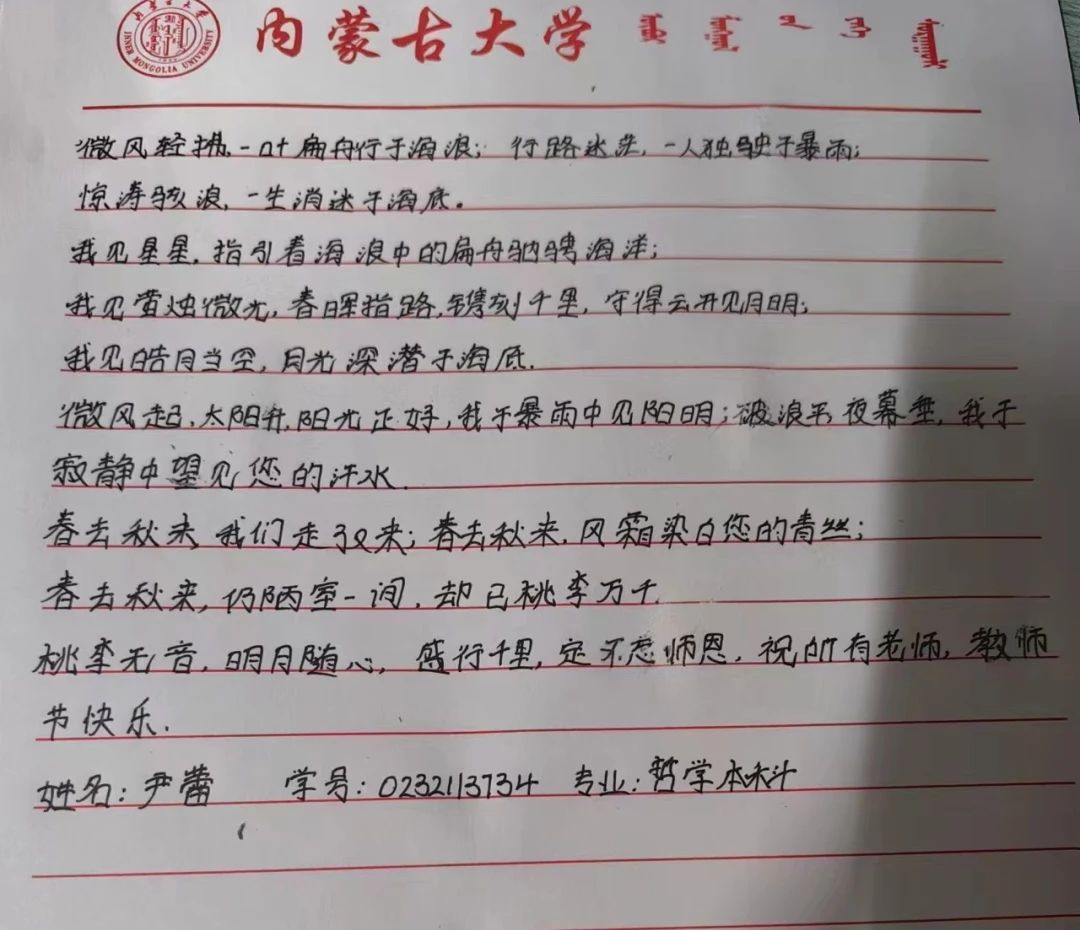 内蒙古大学
INNER MONGOLIA UNIVERSITY
微风轻拂,一叶扁舟行于海浪;行路迷茫,一人独驶于暴雨;
惊涛骇浪,一生消迷于海底。
我见星星,指引着海浪中的扁舟驰骋海洋;
我见萤烛微光,春晖指路,镌刻千里,守得云开见月明;
我见皓月当空,月光深潜于海底.
微风起,太阳升,阳光正好,我于暴雨中见阳明;破浪平,夜幕垂,我于
寂静中望见您的汗水.
春去秋来,我们走了又来;春去秋来,风霜染白您的青丝;
春去秋来,仍陋室一间,却已桃李万千.
桃李无音,明月随心,盛行千里,定不忘师恩,祝所有老师,教师
节快乐.
姓名:尹蕾 学号:0232113734 专业:哲学本科